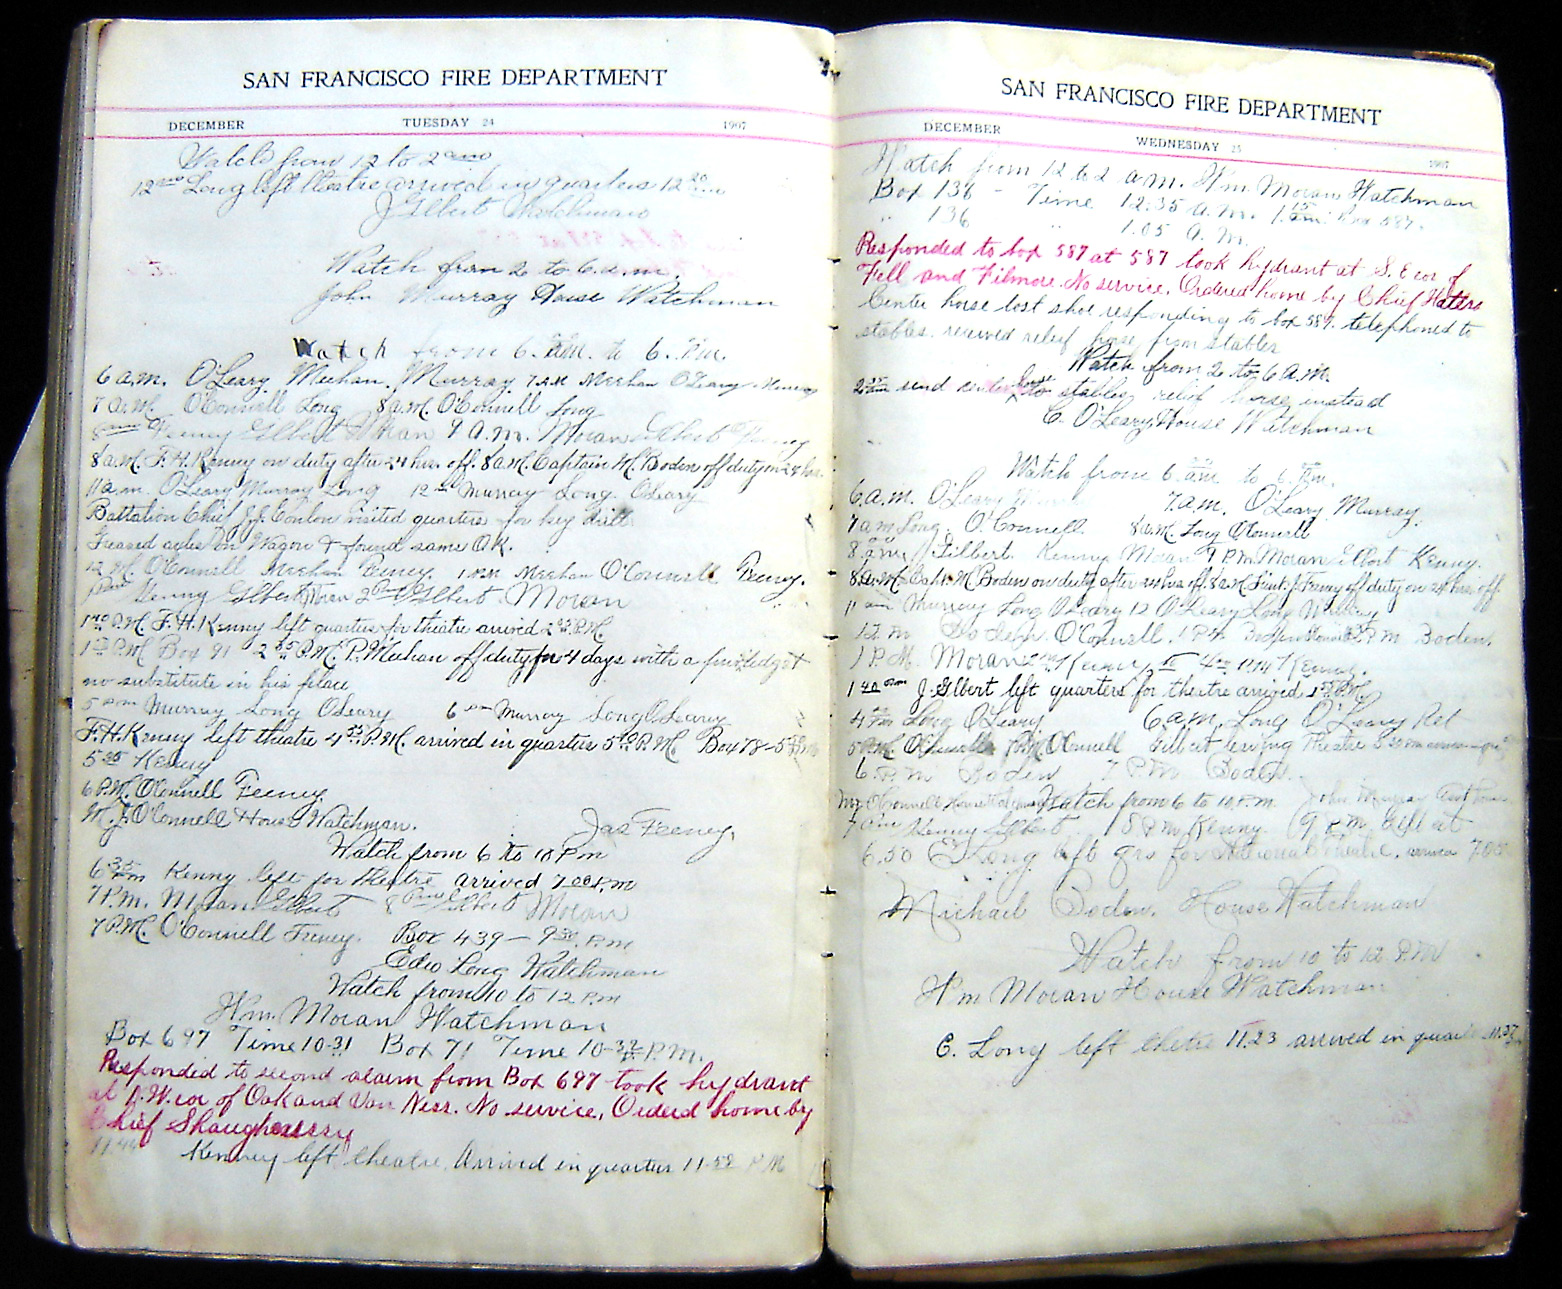 SAN FRANCISCO FIRE DEPARTMENT
DECEMBER TUESDAY 24 1907
Watch from 12 to 2 am
12 Long left theatre arrived in quarters 12 20
J Gilbert Watchman
Watch from 2 to 6. a.m.
John Murray House Watchman
Watch from 6. am. to 6. Pm.
6 a.m. O'Leary Meehan. Murray 7 a.m Meehan O'Leary Murray
7 a.M. O'Connell Long 8 a.M. O'Connell Long
8 Feeney Gilbert Moran 9 A.m. Moran Gilbert Feeney
8 a.M. F. H. Kenny on duty after 24 hrs. off. 8 a.M. Captain M. Boden off duty on 24 hrs.
11 a.m. O'Leary Murray Long 12 Murray Long. O'Leary
Battalion Chief J.J. Conlon visited quarters for key drill
Greased axles on Wagon & found same O.K.
12 M. O'Connell Meehan Feeney. 1 P.M Meehan O'Connell Feeney.
Kenny Gilbert Moran 2 Gilbert. Moran
P.M. F. H. Kenny left quarters for theatre arrived 2 P.M.
1 P.M. Box 91 2 35 P.M. P. Meehan off duty for 4 days with a privledge &
no substitute in his place
5 Murray Long O'Leary 6 Murray Long O'Leary
F. H. Kenny left theatre 4 55 P.M. arrived in quarters 5 10 P.M. Box 78 - 5
5 25 Kenny
6 P.M. O'Connell Feeney.
M. J. O'Connell House Watchman.
Jas Feeney.
Watch from 6 to 10 P m
6 35 Pm Kenny left for theatre arrived 7 00 P.m
7 P.m. Moran Gilbert 8 Gilbert Moran
7 P.M. O'Connell Feeney. Box 439 - 9 30 P.m
Edw Long Watchman
Watch from 10 to 12 P.m
Wm. Moran Watchman
Box 697 Time 10-31 Box 71 Time 10-32 P.M.
Responded to second alarm from Box 697 took hydrant
at N.W. cor of Oak and Van Ness. No service, Orderd home by
Chief Shaughnessy
11.44 Kenney left theatre. Arrived in quarters 11-58 P.M
SAN FRANCISCO FIRE DEPARTMENT
DECEMBER WEDNESDAY 25 1907
Watch from 12 to 2 a.m. Wm Moran Watchman
Box 138 - Time 12:35 A.M. 1.15 am. Box 587.
" 136 " 1.05 A.M.
Responded to box 587 at 587 took hydrant at S. E cor of
Fell and Filmore. No service. Ordered home by Chief Waters
Center horse lost shoe responding to box 587. telephoned to
stables. received relief horse from stables
Watch from 2 to 6 A.M.
2 send center horse to stables, relief horse instead
C. O'Leary House Watchman
Watch from 6 am to 6 Pm.
6 a.m. O'Leary 7 a.m. O'Leary Murray.
7 am Long. O'Connell 8 a.M. Long O'Connell
8 am Gilbert Kenny Moran 9 P.m Moran Gilbert Kenny.
8 a.M. Capt. M. Boden on duty after 24 hrs off. 8 a.M. Lieut. J. Feeney off duty on 24 hrs. off.
11 am Murray Long O'Leary 12 O'Leary Long Murray
12 m Boden O'Connell. 1 P.m P.M. Boden.
1 P.M. Moran Kenny
1 40 J. Gilbert left quarters for theatre arrived P.M.
4 Pm Long O'Leary 6 a.m. Long O'Leary
5 P.M. O'Connell 6 P.M. O'Connell Gilbert leaving Theatre
6. P.m Boden 7 P.m Boden.
M J O'Connell House Watchman Watch from 6 to 10 P.m. John Murray
7 Kenny Gilbert 8 P.m Kenny 9 P.m.
6.50 E. Long left qrs for National Theatre, arrive 7.00
Michael Boden. House Watchman
Watch from 10 to 12 P.M
Wm Moran House Watchman
E. Long left theatre 11.23 arrived in quarters 11.37